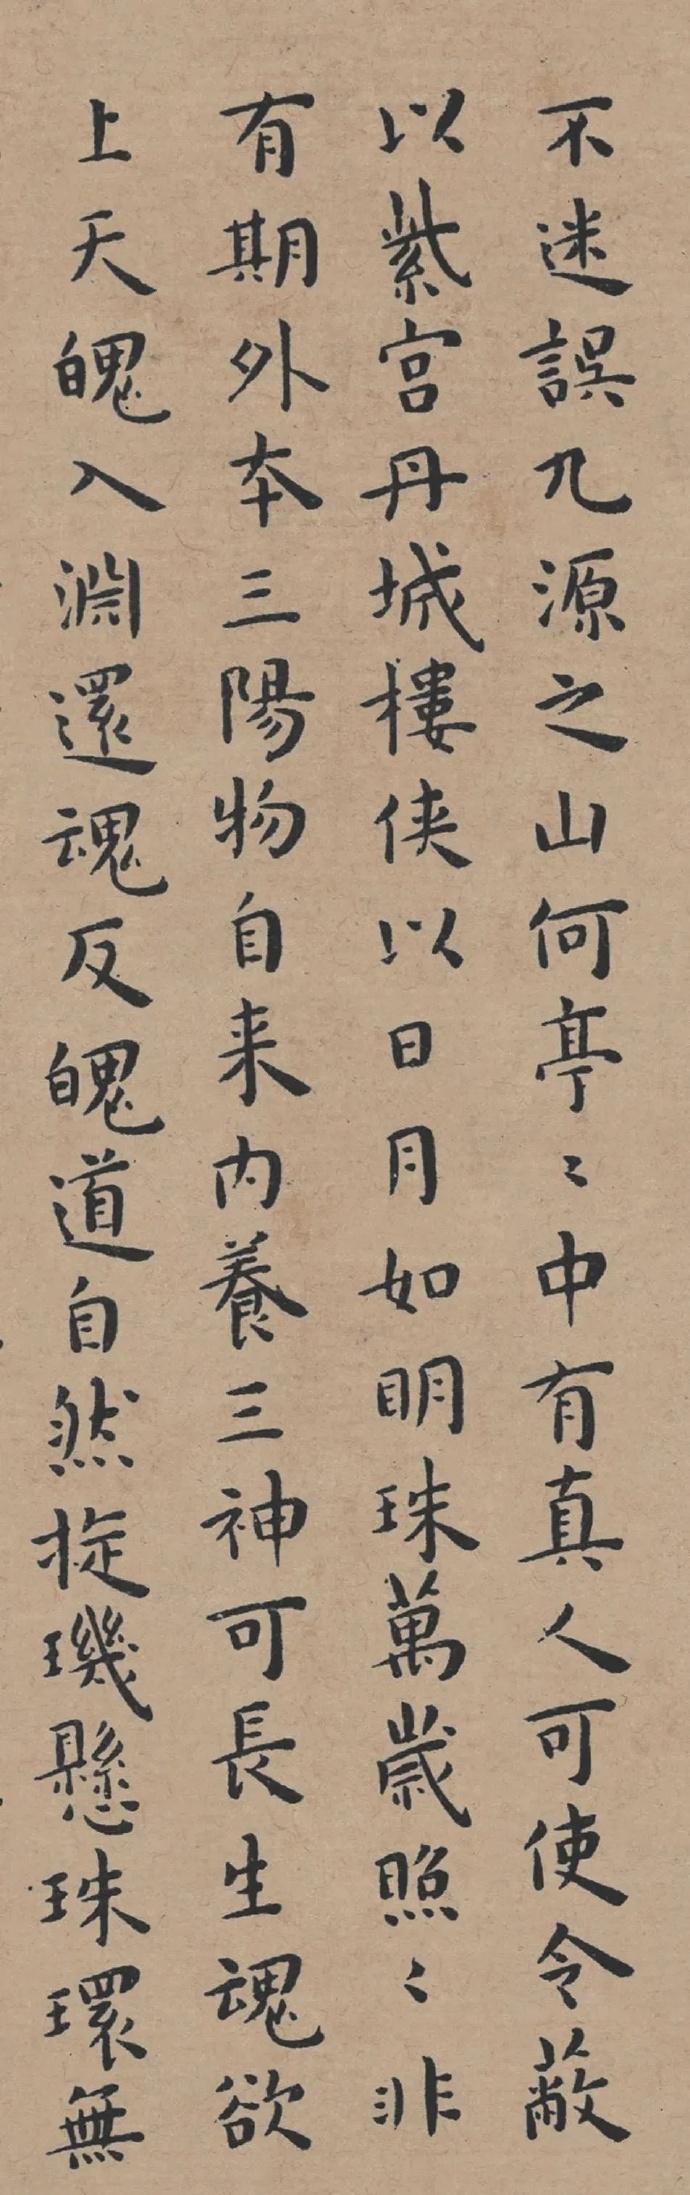 不迷誤九源之山何亭〻中有真人可使令蔽
以紫宫丹城樓侠以日月如明珠萬歲照〻非
有期外夲三陽物自来内養三神可長生魂欲
上天魄入淵還魂反魄道自然捉璣懸珠環無